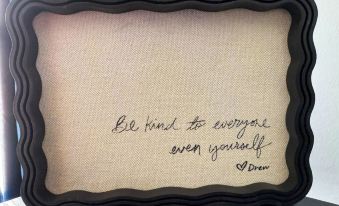 Be kind to everyone
even yourself
♡ Drew